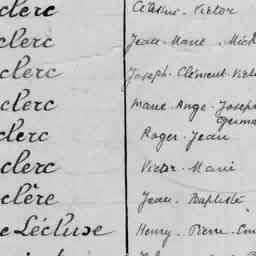 clerc Célestin - Victor
clerc Jean - Marie - Mich
clerc Joseph - Clément - Victo
clerc Marie - Ange - Joseph
Germa
clerc Roger - Jean
clerc Victor - Marie
clère Jean - Baptiste
e Lécluse Henry - Pierre - Em